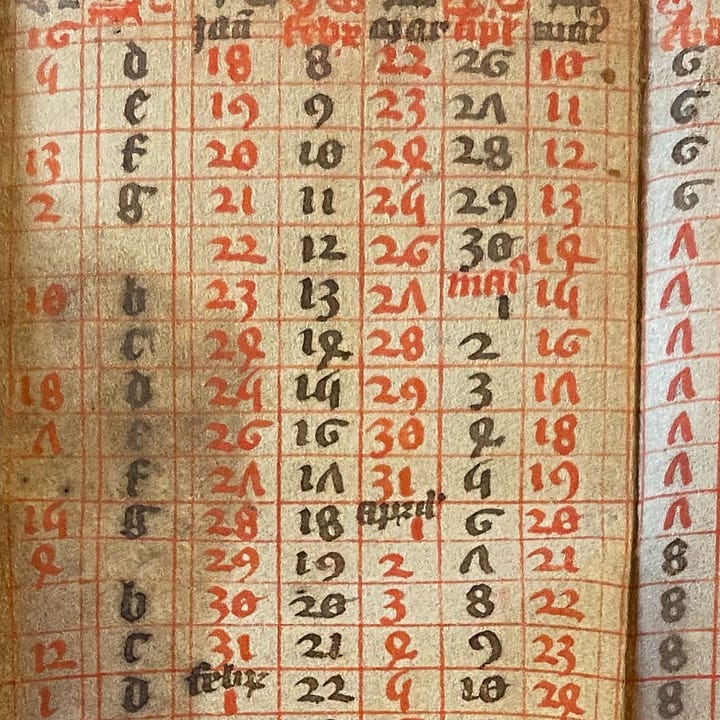 16 jan febr mar apr mai
5 d 18 8 22 26 10 6
e 19 9 23 27 11 6
13 f 20 10 24 28 12 6
2 g 21 11 25 29 13 6
22 12 26 30 14 7
mai
10 b 23 13 27 1 15 7
c 24 14 28 2 16 7
18 d 25 15 29 3 17 7
7 e 26 16 30 4 18 7
f 27 17 31 5 19 7
april
15 g 28 18 1 6 20 7
4 29 19 2 7 21 8
b 30 20 3 8 22 8
12 c 31 21 4 9 23 8
febr
1 d 1 22 5 10 24 8